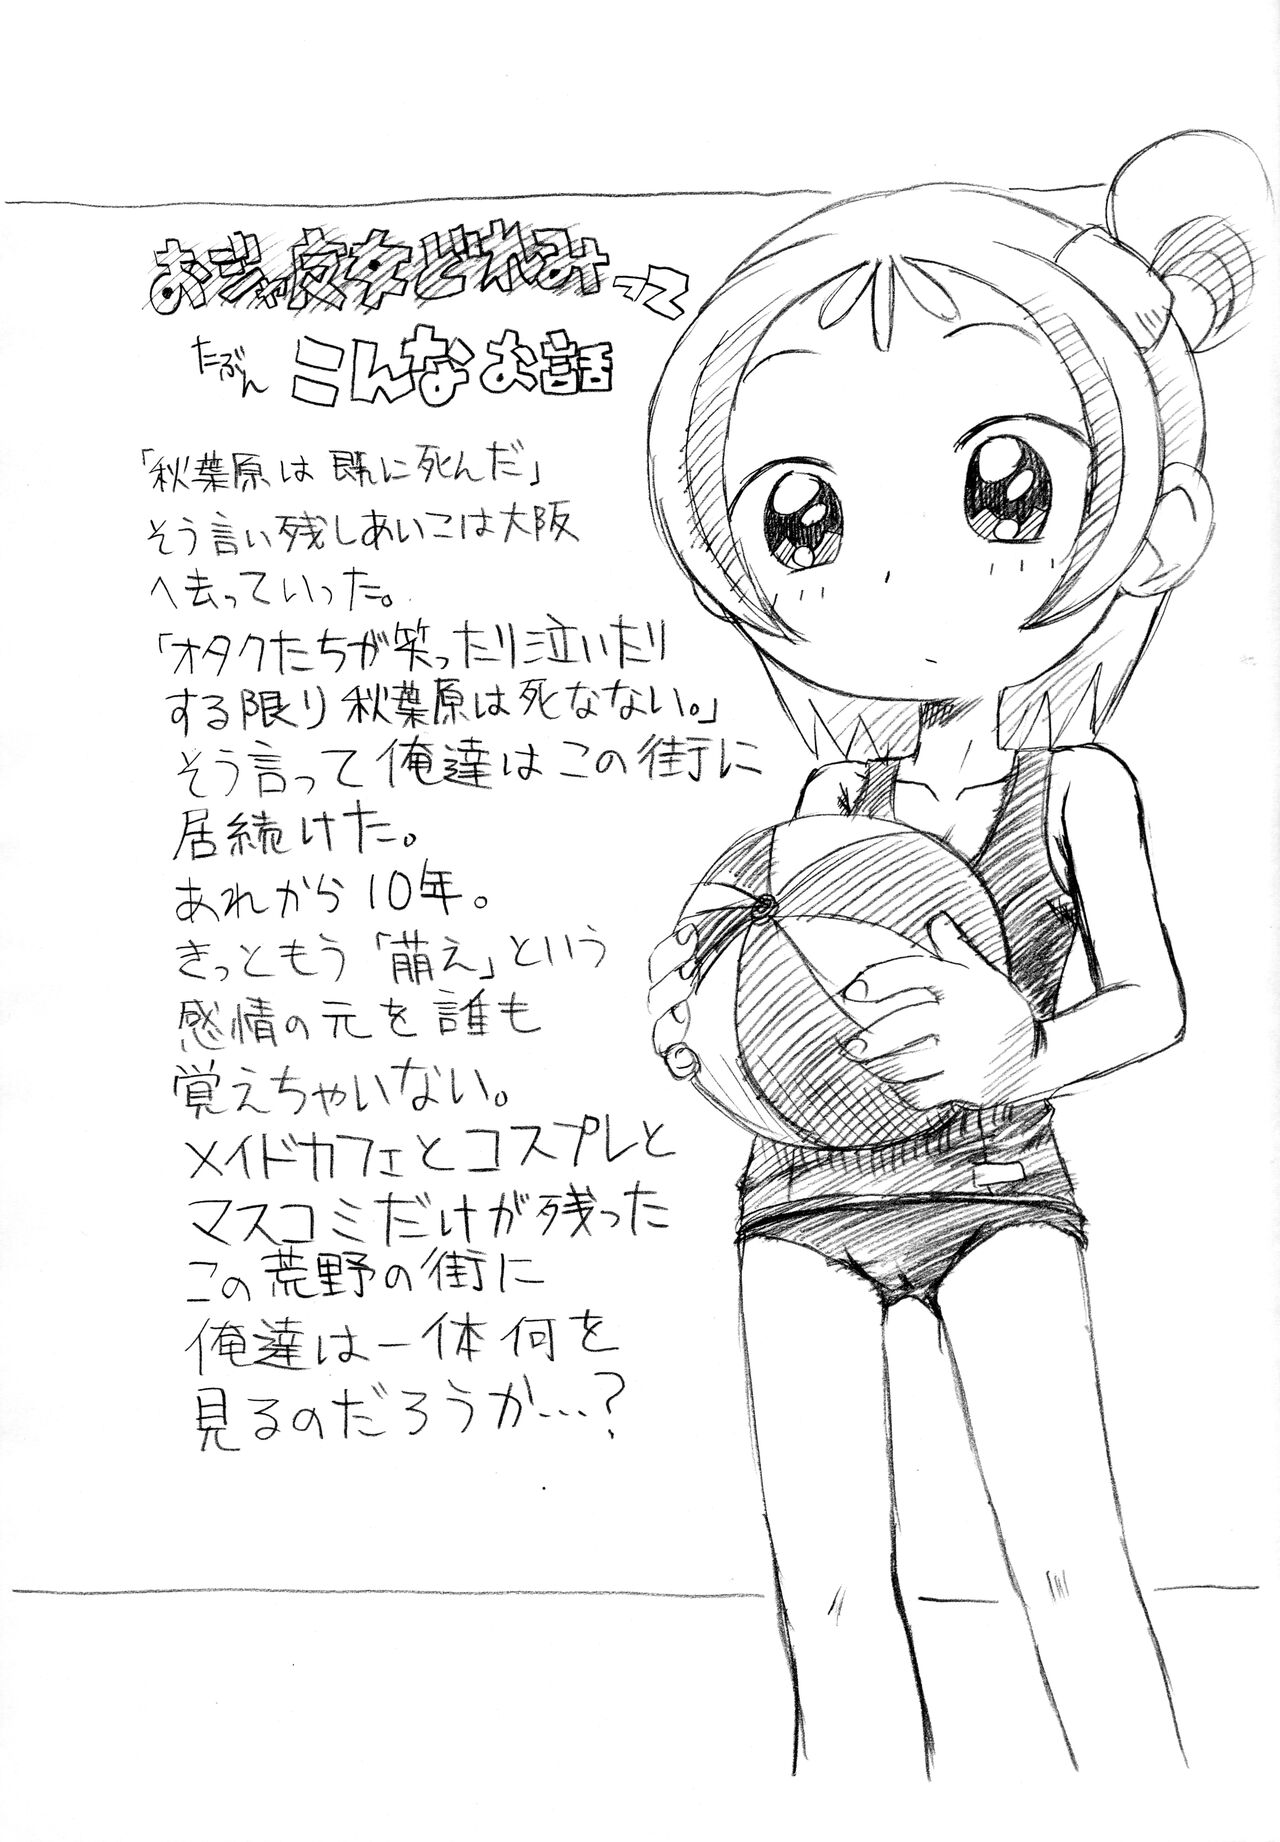 おジャ魔女どれみって
たぶん こんなお話
「秋葉原は既に死んだ」
そう言い残しあいこは大阪
へ去っていった。
「オタクたちが笑ったり泣いたり
する限り秋葉原は死なない。」
そう言って俺達はこの街に
居続けた。
あれから10年。
きっともう「萌え」という
感情の元を誰も
覚えちゃいない。
メイドカフェとコスプレと
マスコミだけが残った
この荒野の街に
俺達は一体何を
見るのだろうか…?